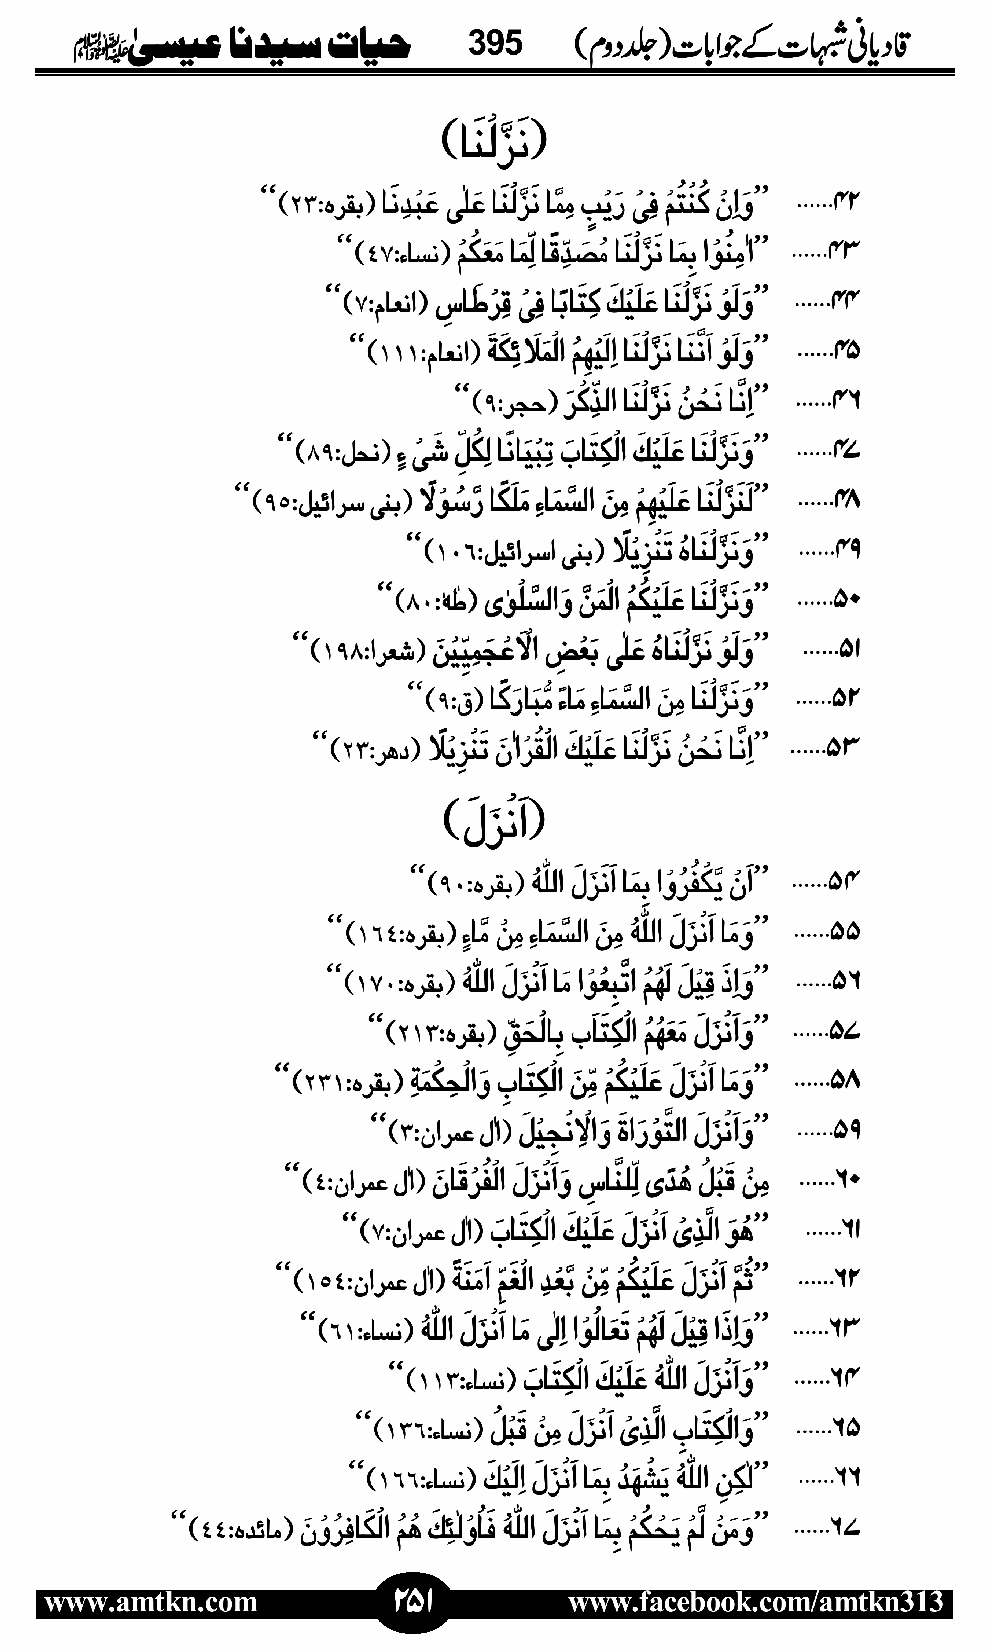 قادیانی شبہات کے جوابات (جلد دوم) 395 حیات سیدنا عیسیٰ ﷺ
(نَزَّلْنَا)
۴۲...... ”وَاِنْ كُنْتُمْ فِیْ رَیْبٍ مِمَّا نَزَّلْنَا عَلٰی عَبْدِنَا (بقرہ:٢٣)“
۴۳...... ”اٰمِنُوْا بِمَا نَزَّلْنَا مُصَدِّقًا لِّمَا مَعَكُمْ (نساء:٤٧)“
۴۴...... ”وَلَوْ نَزَّلْنَا عَلَيْكَ كِتَابًا فِیْ قِرْطَاسٍ (انعام:٧)“
۴۵...... ”وَلَوْ اَنَّنَا نَزَّلْنَا اِلَيْهِمُ الْمَلَائِكَةَ (انعام:١١١)“
۴۶...... ”اِنَّا نَحْنُ نَزَّلْنَا الذِّكْرَ (حجر:٩)“
۴۷...... ”وَنَزَّلْنَا عَلَيْكَ الْكِتَابَ تِبْيَانًا لِكُلِّ شَیْءٍ (نحل:٨٩)“
۴۸...... ”لَنَزَّلْنَا عَلَيْهِمْ مِنَ السَّمَاءِ مَلَكًا رَّسُوْلًا (بنی سرائیل:٩٥)“
۴۹...... ”وَنَزَّلْنَاهُ تَنْزِيْلًا (بنی اسرائیل:١٠٦)“
۵۰...... ”وَنَزَّلْنَا عَلَيْكُمُ الْمَنَّ وَالسَّلْوٰی (طٰهٰ:٨٠)“
۵۱...... ”وَلَوْ نَزَّلْنَاهُ عَلٰی بَعْضِ الْاَعْجَمِيِّيْنَ (شعرا:١٩٨)“
۵۲...... ”وَنَزَّلْنَا مِنَ السَّمَاءِ مَاءً مُّبَارَكًا (ق:٩)“
۵۳...... ”اِنَّا نَحْنُ نَزَّلْنَا عَلَيْكَ الْقُرْاٰنَ تَنْزِيْلًا (دهر:٢٣)“
(اَنْزَلَ)
۵۴...... ”اَنْ يَّكْفُرُوْا بِمَا اَنْزَلَ اللّٰهُ (بقرہ:٩٠)“
۵۵...... ”وَمَا اَنْزَلَ اللّٰهُ مِنَ السَّمَاءِ مِنْ مَّاءٍ (بقرہ:١٦٤)“
۵۶...... ”وَاِذَ قِيْلَ لَهُمُ اتَّبِعُوْا مَا اَنْزَلَ اللّٰهُ (بقرہ:١٧٠)“
۵۷...... ”وَاَنْزَلَ مَعَهُمُ الْكِتَابَ بِالْحَقِّ (بقرہ:٢١٣)“
۵۸...... ”وَمَا اَنْزَلَ عَلَيْكُمْ مِّنَ الْكِتَابِ وَالْحِكْمَةِ (بقرہ:٢٣١)“
۵۹...... ”وَاَنْزَلَ التَّوْرَاةَ وَالْاِنْجِيْلَ (اٰل عمران:٣)“
۶۰...... مِنْ قَبْلُ هُدًى لِّلنَّاسِ وَاَنْزَلَ الْفُرْقَانَ (اٰل عمران:٤)“
۶۱...... ”هُوَ الَّذِیْ اَنْزَلَ عَلَيْكَ الْكِتَابَ (اٰل عمران:٧)“
۶۲...... ”ثُمَّ اَنْزَلَ عَلَيْكُمْ مِّنْ بَّعْدِ الْغَمِّ اَمَنَةً (اٰل عمران:١٥٤)“
۶۳...... ”وَاِذَا قِيْلَ لَهُمْ تَعَالَوْا اِلٰی مَا اَنْزَلَ اللّٰهُ (نساء:٦١)“
۶۴...... ”وَاَنْزَلَ اللّٰهُ عَلَيْكَ الْكِتَابَ (نساء:١١٣)“
۶۵...... ”وَالْكِتَابِ الَّذِیْ اَنْزَلَ مِنْ قَبْلُ (نساء:١٣٦)“
۶۶...... ”لٰكِنِ اللّٰهُ يَشْهَدُ بِمَا اَنْزَلَ اِلَيْكَ (نساء:١٦٦)“
۶۷...... ”وَمَنْ لَّمْ يَحْكُمْ بِمَا اَنْزَلَ اللّٰهُ فَاُولٰئِكَ هُمُ الْكَافِرُوْنَ (مائدہ:٤٤)“
www.amtkn.com ۲۵۱ www.facebook.com/amtkn313